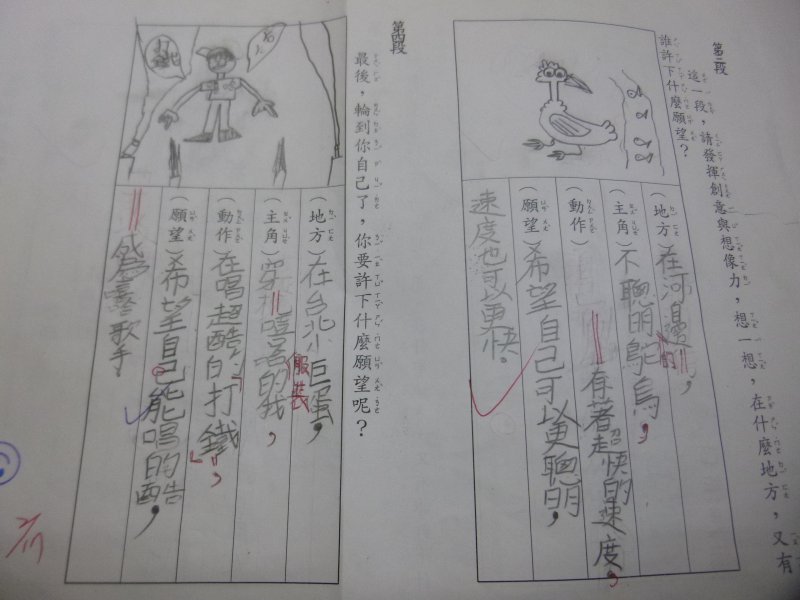 第三段
這一段，請發揮創意與想像力，想一想，在什麼地方，又有
誰許下什麼願望？
（地方）在河邊的，
（主角）不聰明鴕鳥，
（動作）有著超快的速度。
（願望）希望自己可以更聰明，
速度也可以更快。
第四段
最後，輪到你自己了，你要許下什麼願望呢？
（地方）在台北小巨蛋，
（主角）穿嘻唱的服裝我，
（動作）在唱超酷的打鐵，
（願望）希望自己能唱的酷，
歌手。